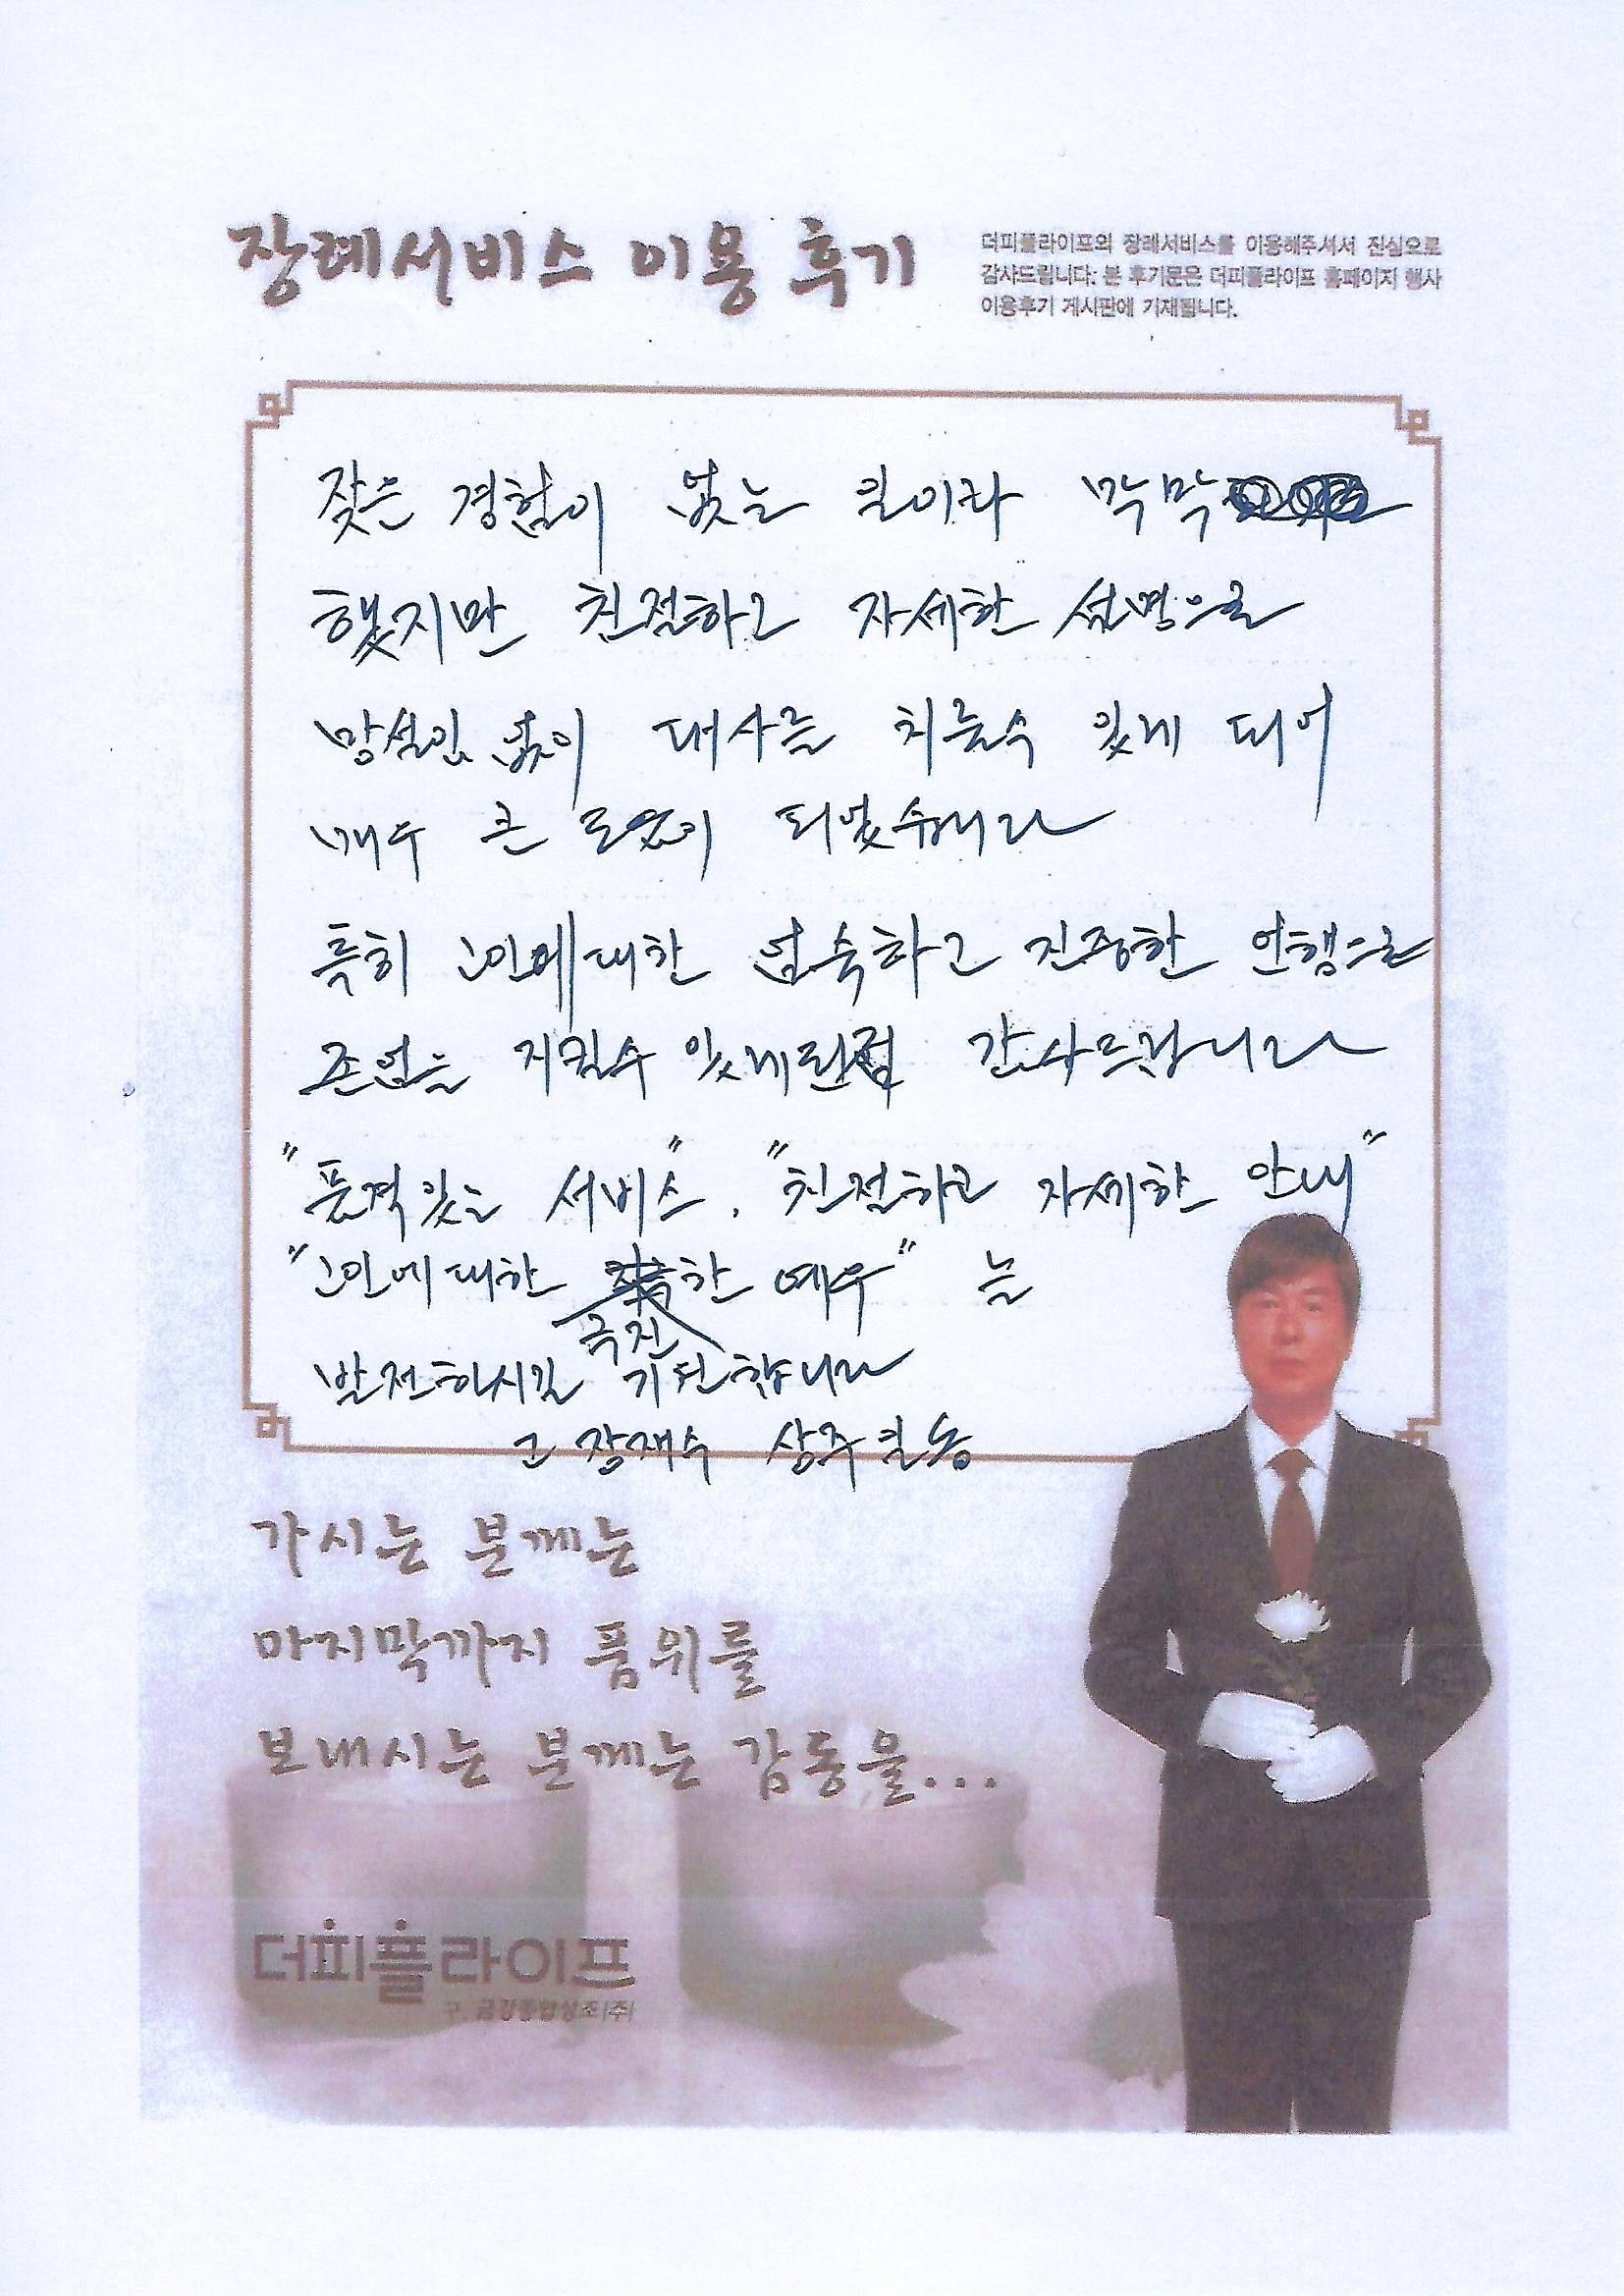 장례서비스 이용 후기
더피플라이프의 장례서비스를 이용해주셔서 진심으로
감사드립니다. 본 후기문은 더피플라이프 홈페이지 행사
이용후기 게시판에 기재됩니다.
잦은 경험이 없는 일이라 막막
했지만 친절하고 자세한 설명으로
망설임 없이 대사를 치를수 있게 되어
매우 큰 도움이 되었습니다
특히 고인에대한 엄숙하고 진중한 언행으로
존엄을 지킬수 있게된점 감사드립니다
"품격있는 서비스", "친절하고 자세한 안내"
"고인에대한 극진한 예우" 는
발전하시길 기원합니다
고 장재수 상주일동
가시는 분께는
마지막까지 품위를
보내시는 분께는 감동을...
더피플라이프
구. 금강종합상조(주)